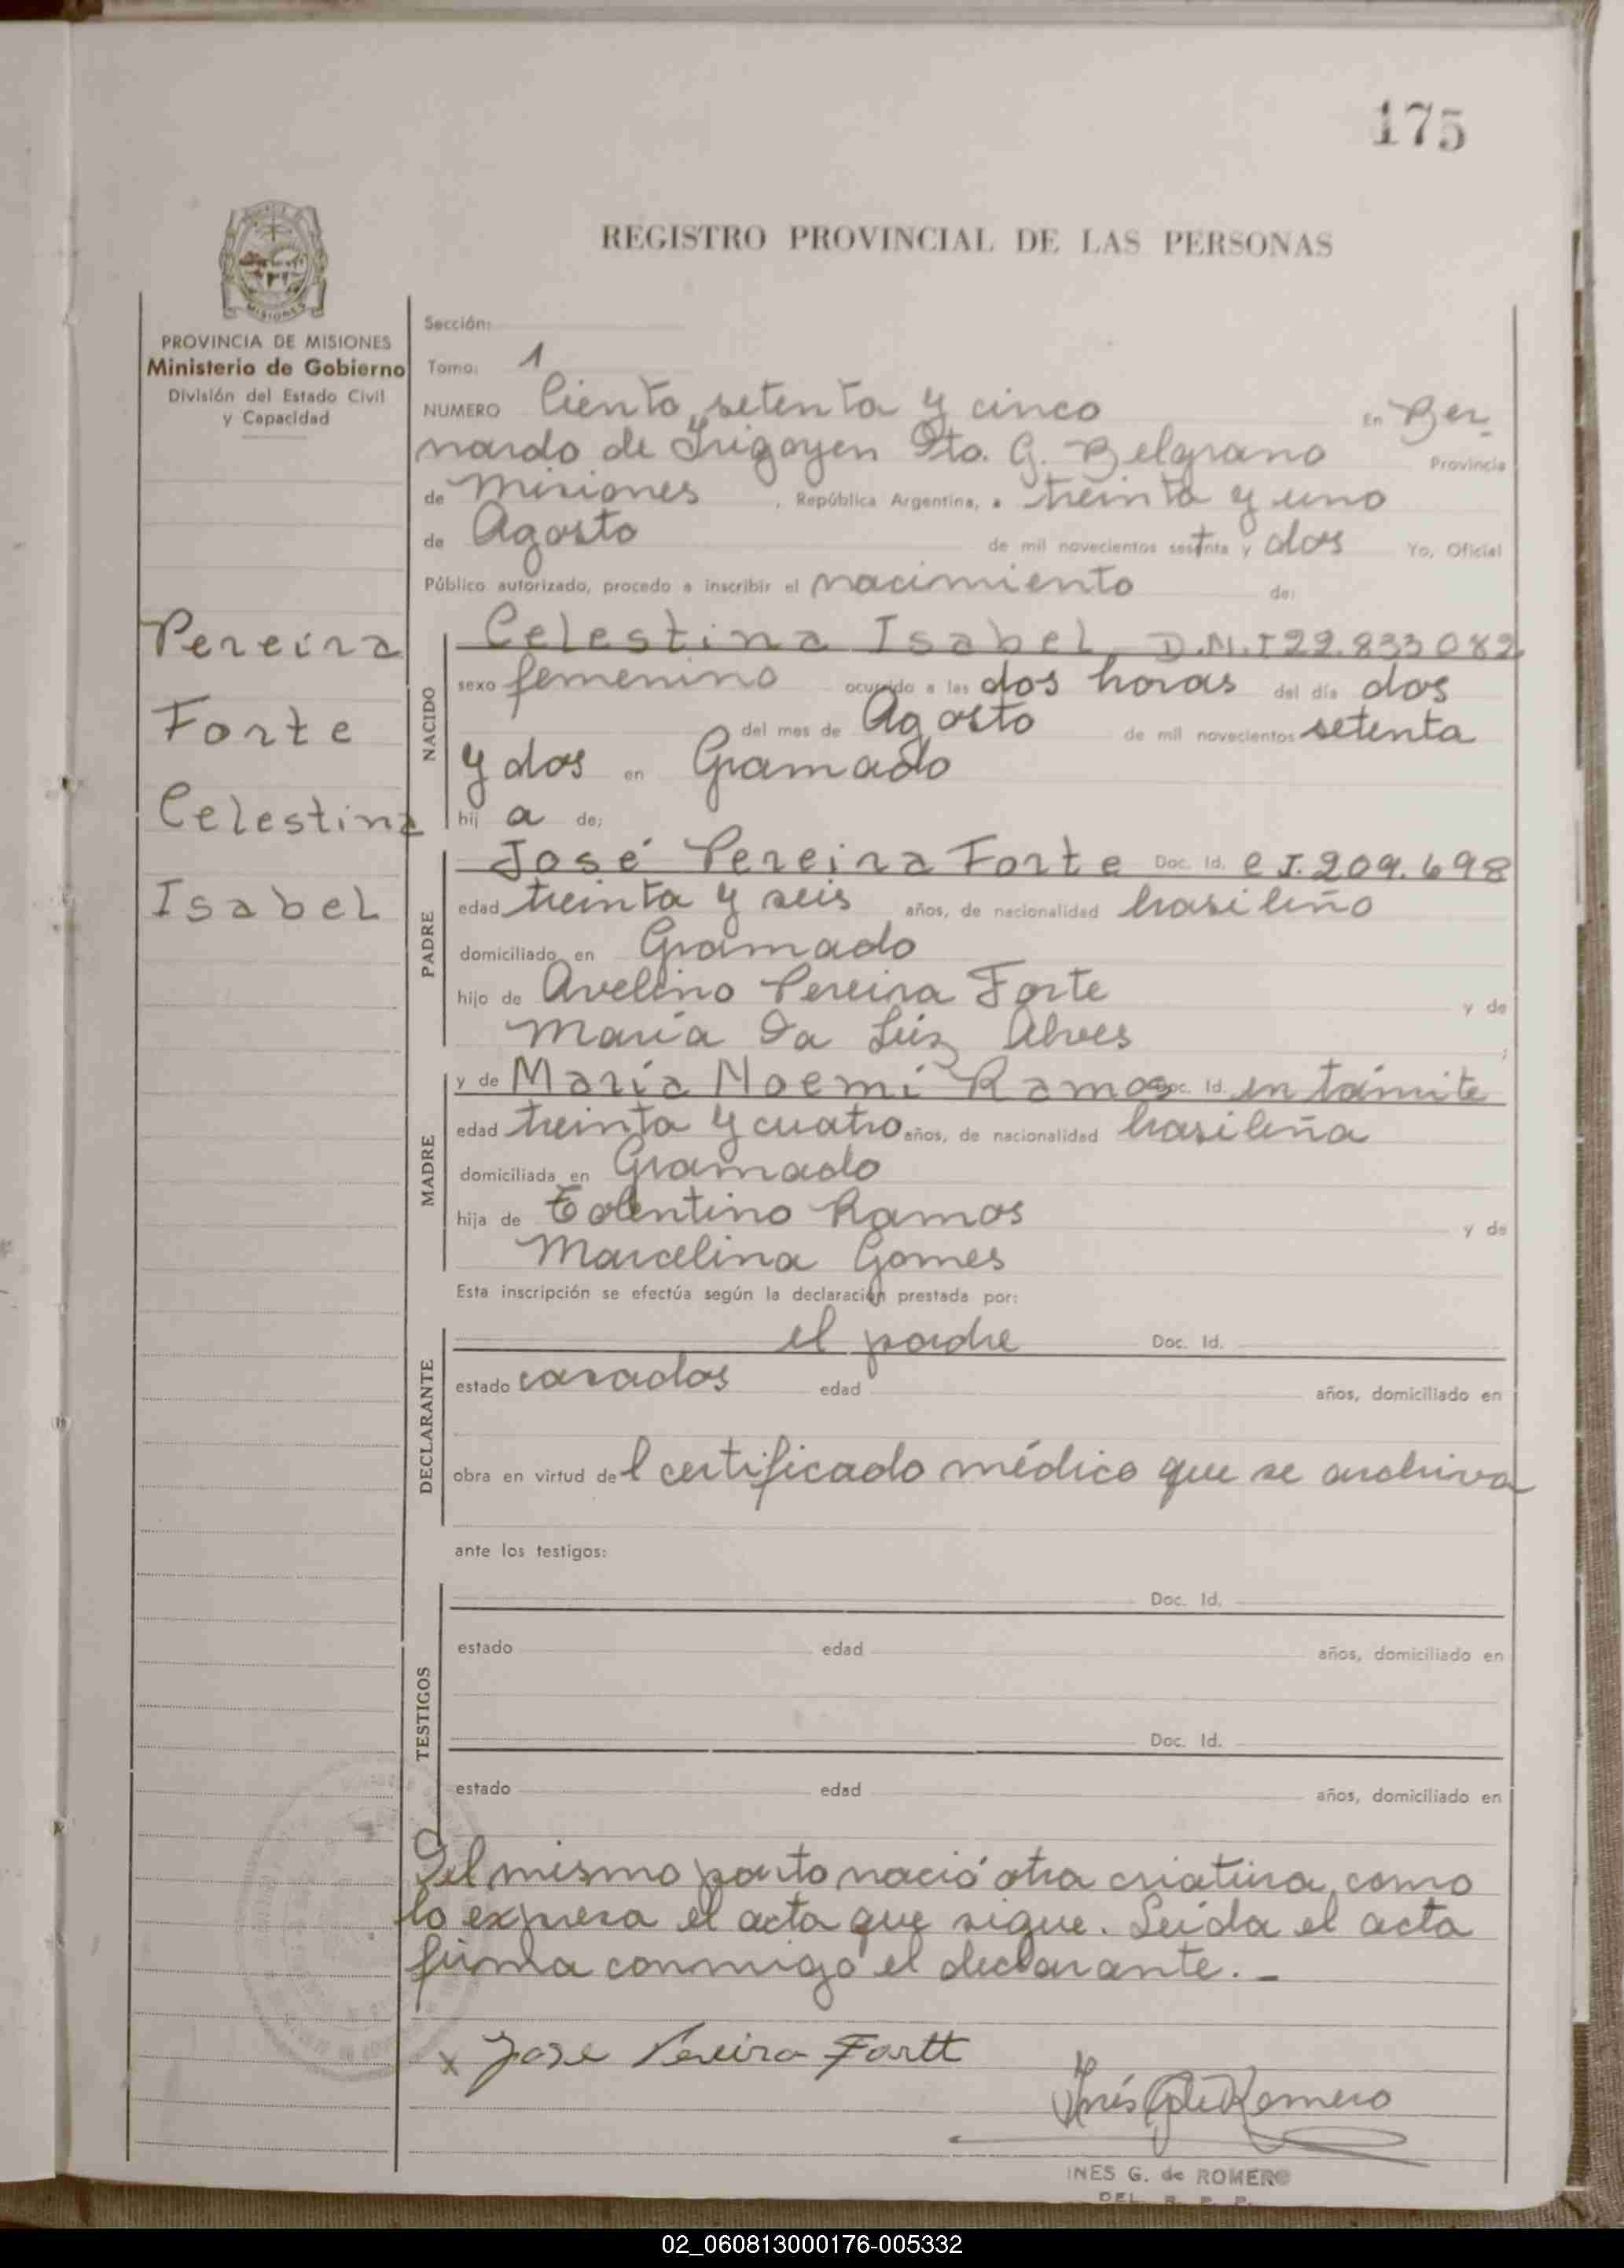 175
REGISTRO PROVINCIAL DE LAS PERSONAS
MISIONES
PROVINCIA DE MISIONES
Ministerio de Gobierno
División del Estado Civil
y Capacidad
Pereira
Forte
Celestina
Isabel
Sección:
Tomo: 1
NUMERO Ciento setenta y cinco En Ber-
nardo de Irigoyen Dto. G. Belgrano Provincia
de Misiones, República Argentina, a treinta y uno
de Agosto de mil novecientos setenta y dos Yo, Oficial
Público autorizado, procedo a inscribir el nacimiento de:
NACIDO
Celestina Isabel, D.N.I 22.833082
sexo femenino ocurrido a las dos horas del día dos
del mes de Agosto de mil novecientos setenta
y dos en Gramado
hij a de;
PADRE
José Pereira Forte Doc. Id. C.I. 209.698
edad treinta y seis años, de nacionalidad brasileño
domiciliado en Gramado
hijo de Avelino Pereira Forte y de
María Da Luz Alves;
MADRE
y de María Noemí Ramos Doc. Id. en támite
edad treinta y cuatro años, de nacionalidad brasileña
domiciliada en Gramado
hija de Tolentino Ramos y de
Marcelina Gomes
Esta inscripción se efectúa según la declaración prestada por:
DECLARANTE
el padre Doc. Id.
estado casados edad años, domiciliado en
obra en virtud del certificado médico que se archiva
ante los testigos:
TESTIGOS
Doc. Id.
estado edad años, domiciliado en
Doc. Id.
estado edad años, domiciliado en
Del mismo parto nació otra criatura, como
lo expresa el acta que sigue. Leída el acta
firma conmigo el declarante.-
x Jose Pereira Fortt
Inés G de Romero
INES G. de ROMERO
DEL. R. P. P.
02_060813000176-005332